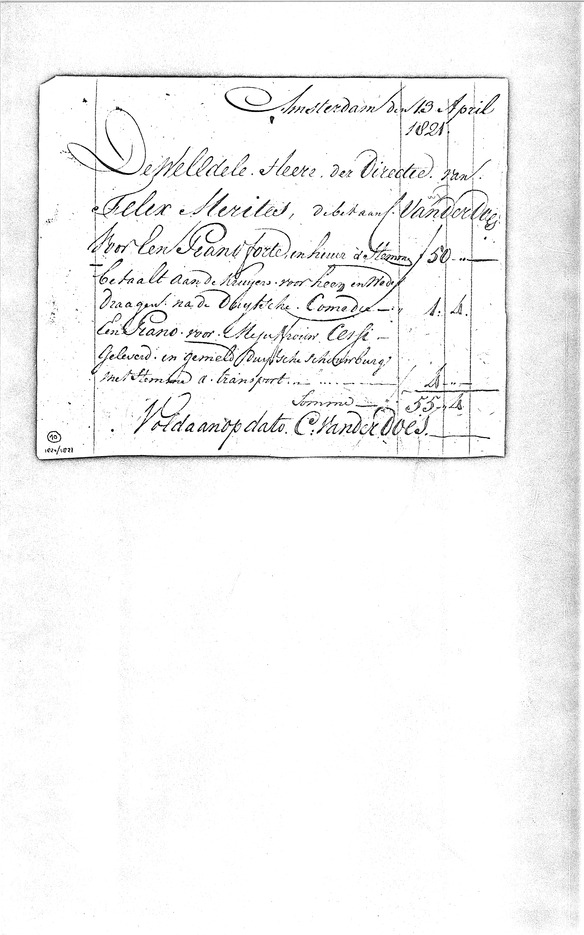 Amsterdam den 13 April
1821.
De Welldele Heere der Directie van
Felix Meritis, debet aan C. Van der Does
Voor Een Piano forte, en huur & Stemme f 50 -"-
betaalt aan de Kruyers voor heen en Weder
draagen na de Duytsche Comedie - " 1: 4.
Een Piano voor Mejuffrouw Cessi -
Geleverd in gemeld Duytsche Schouwburg
met Stemme & transport 4 -"-
Somme 55 " 4
Voldaan op dato C. Van der Does.
10
1821/1822